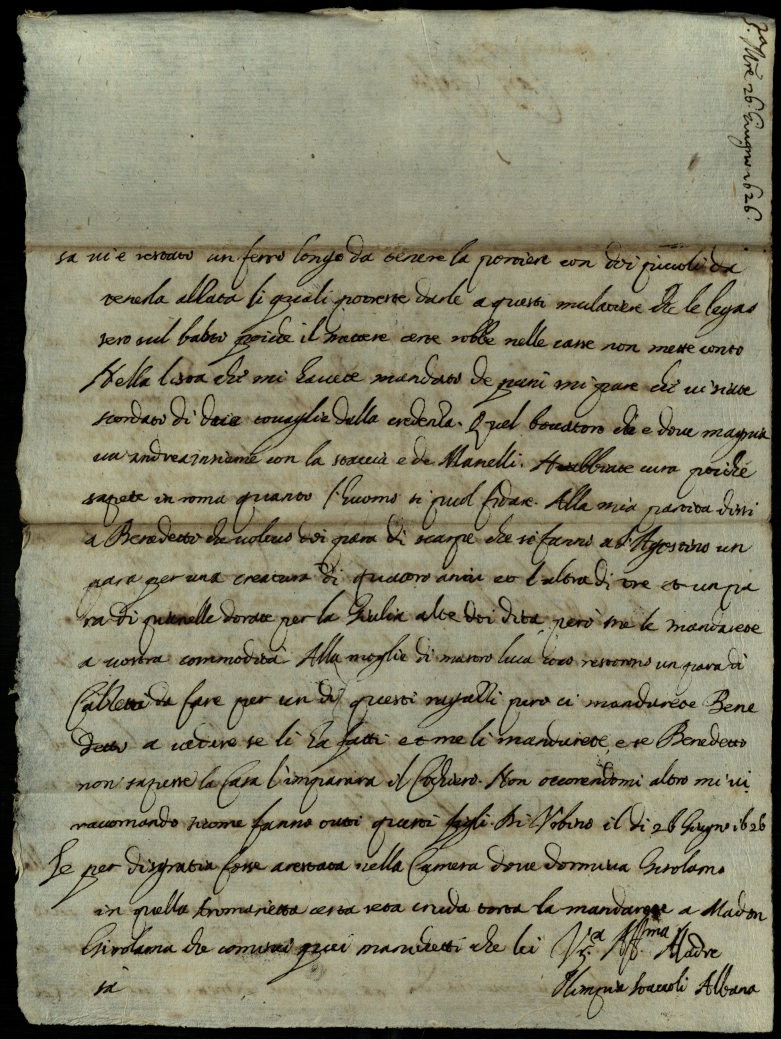 S.ra M.re 26 Giugno 1626
sa vi è restato un ferro longo da tenere la portiere con doi piccioli da
tenerla allata li quali potrete darle a questi mulattiere che le legas
sero sul basto poiché il mettere certe robbe nelle casse non mette conto
Nella lista che mi havete mandato de panni mi pare che vi siate
scordato di doie tovaglie dalla credenza. Quel boccatoro che è dove magnia
va andrea insieme con la e de Manelli. Habbiate cura poiché
sapete in roma quanto l'huomo si puol fidare. Alla mia partita dissi
a Benedetto che volevo doi para di scarpe che si fanno a S.to Agostino un
para per una creatura di quattro anni et l'altra di tre et un pa
ra di pianelle dorate per la Giulia alte doi dita però me le mandarete
a vostra commodità Alla moglie di mastro luca restorono un para di
da fare per un di questi rugalli però ci mandarete Bene
detto a vedere se li ha fatti et me li mandarete, e se Benedetto
non sapesse la Casa l'imparara il Cochiero. Non occorendomi altro mi vi
raccomando sicome fanno tutti questi figli. Di Urbino il di 26 Giugno 1626
Se per disgratia fosse arestata nella Camera dove dormiva Girolamo
in quella certa seta cruda torta la mandarete a Madon
Girolama che comisci quei manichetti che lei V.ra Aff.ma Madre
sà Olimpia Staccoli Albana